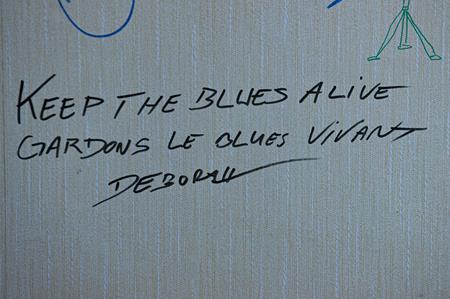 KEEP THE BLUES ALIVE
GARDONS LE BLUES VIVANT
DEBORAH